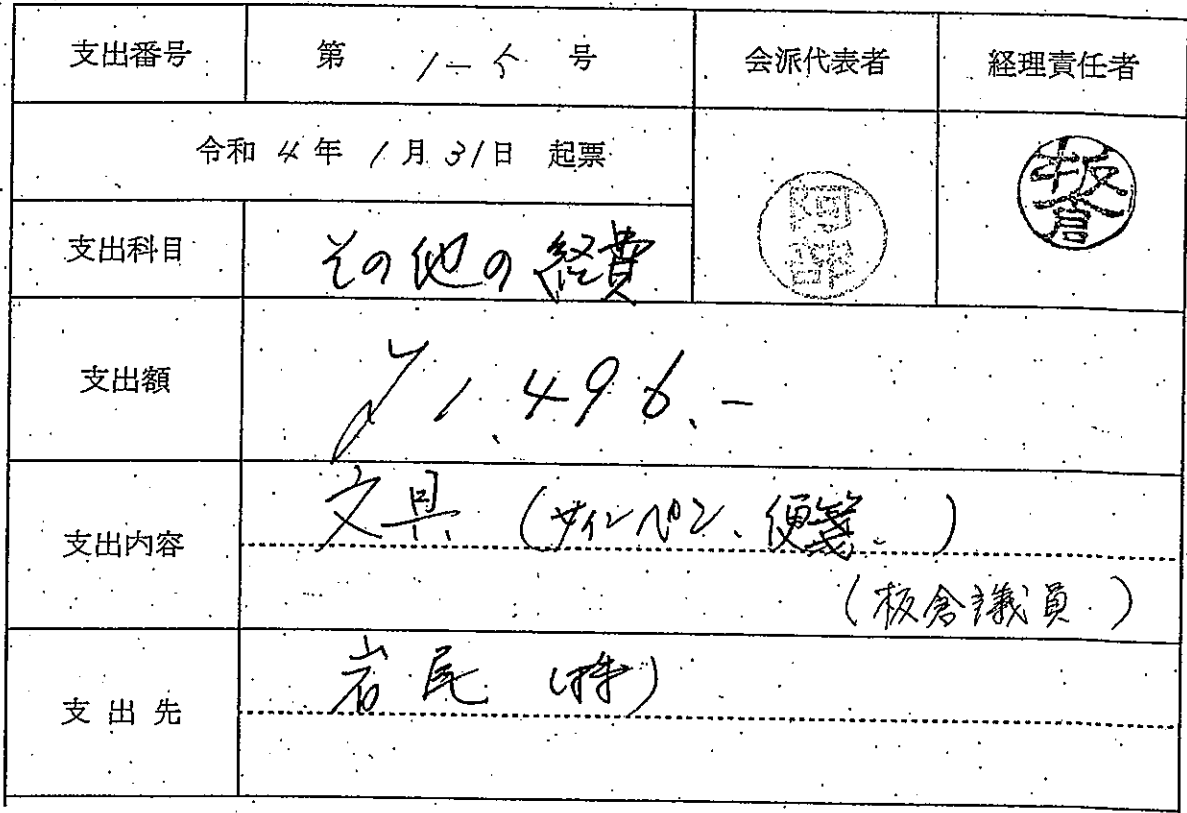 支出番号 第 1-5 号 会派代表者 経理責任者
令和 4 年 1 月 31 日 起票
阿部
板倉
支出科目 その他の経費
支出額 ¥1,496.-
支出内容 文具 (サインペン、便箋、)
(板倉議員)
支出先 岩尾 (株)